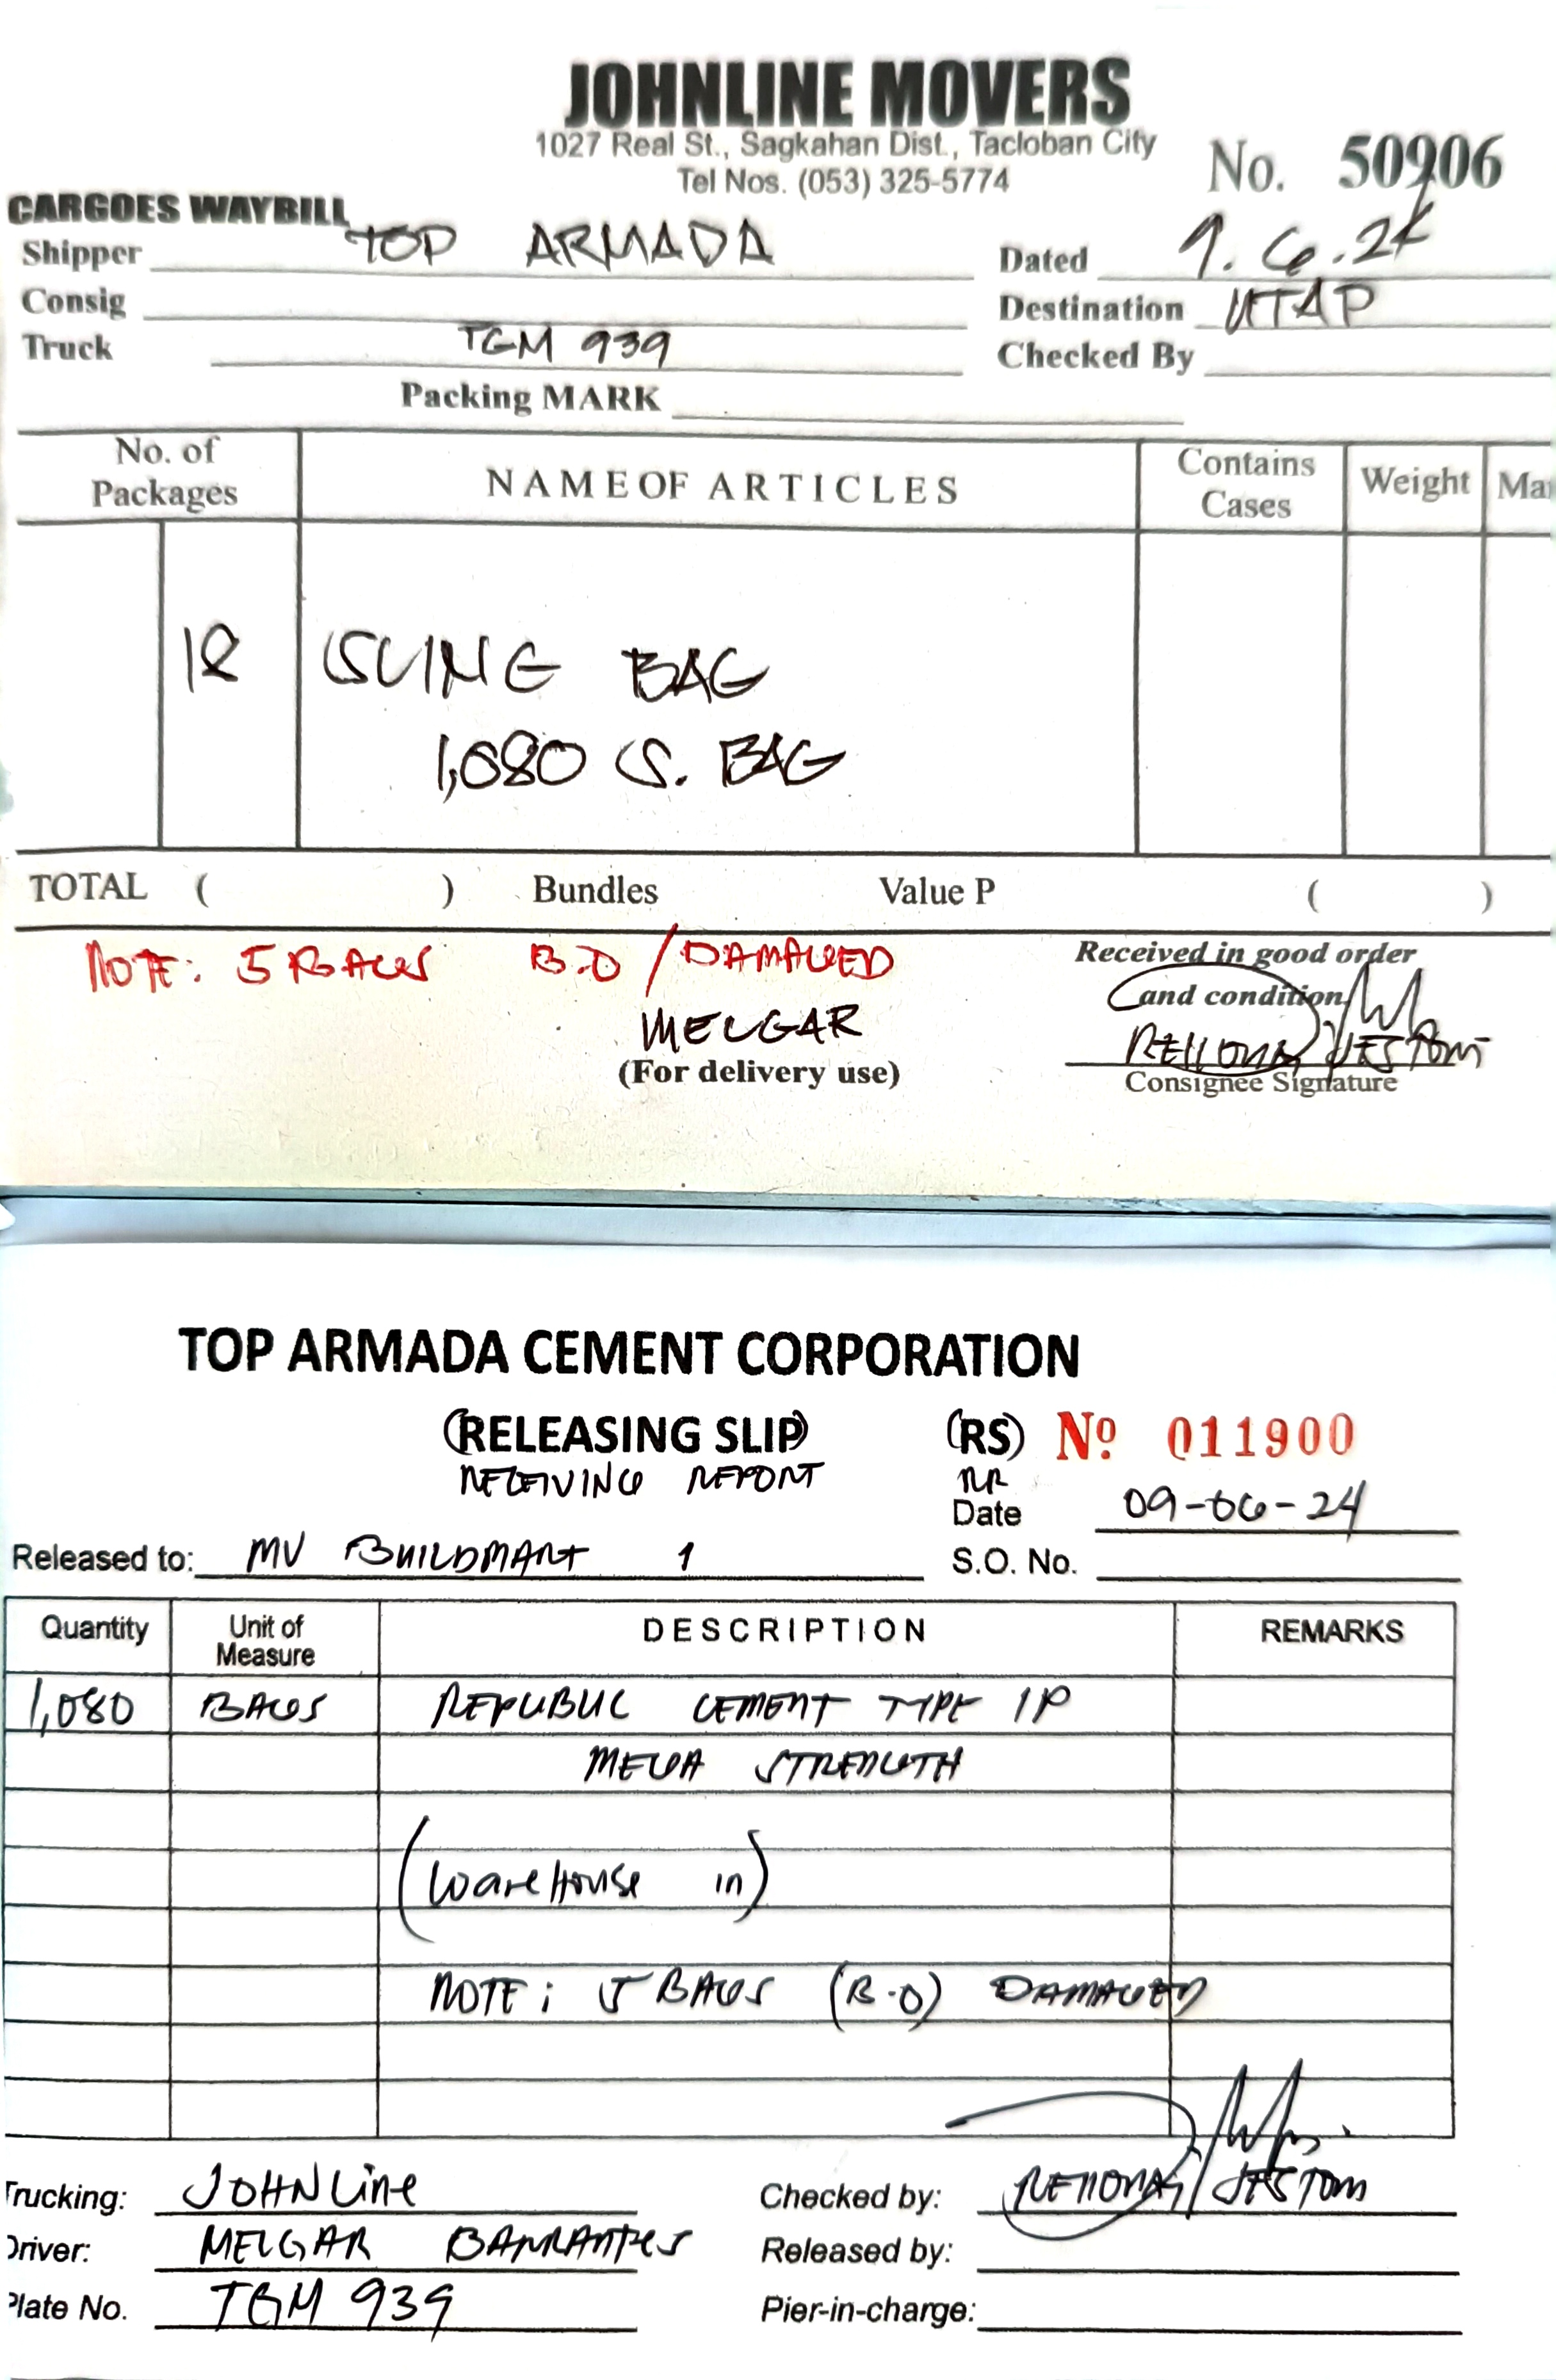 JOHNLINE MOVERS
1027 Real St., Sagkahan Dist., Tacloban City
Tel Nos. (053) 325-5774
No. 50906
CARGOES WAYBILL
Shipper TOP ARMADA
Dated 9.6.24
Consig
Destination UTAP
Truck TGM 939
Checked By
Packing MARK
No. of Packages NAME OF ARTICLES Contains Cases Weight
18 SLING BAG
1,080 S. BAG
TOTAL ( ) Bundles Value P ( )
NOTE: 5 BAGS B.O / DAMAGED
Received in good order
and condition
MELGAR
(For delivery use)
Consignee Signature
TOP ARMADA CEMENT CORPORATION
(RELEASING SLIP) (RS) Nº 011900
RECEIVING REPORT RR
Date 09-06-24
Released to: MV BUILDMART 1
S.O. No.
Quantity Unit of Measure DESCRIPTION REMARKS
1,080 BAGS REPUBLIC CEMENT TYPE 1P
MEGA STRENGTH
(WareHouse in)
NOTE: 5 BAGS (B.O) DAMAGED
Trucking: JOHNLine
Checked by:
Driver: MELGAR
Released by:
Plate No. TGM 939
Pier-in-charge: